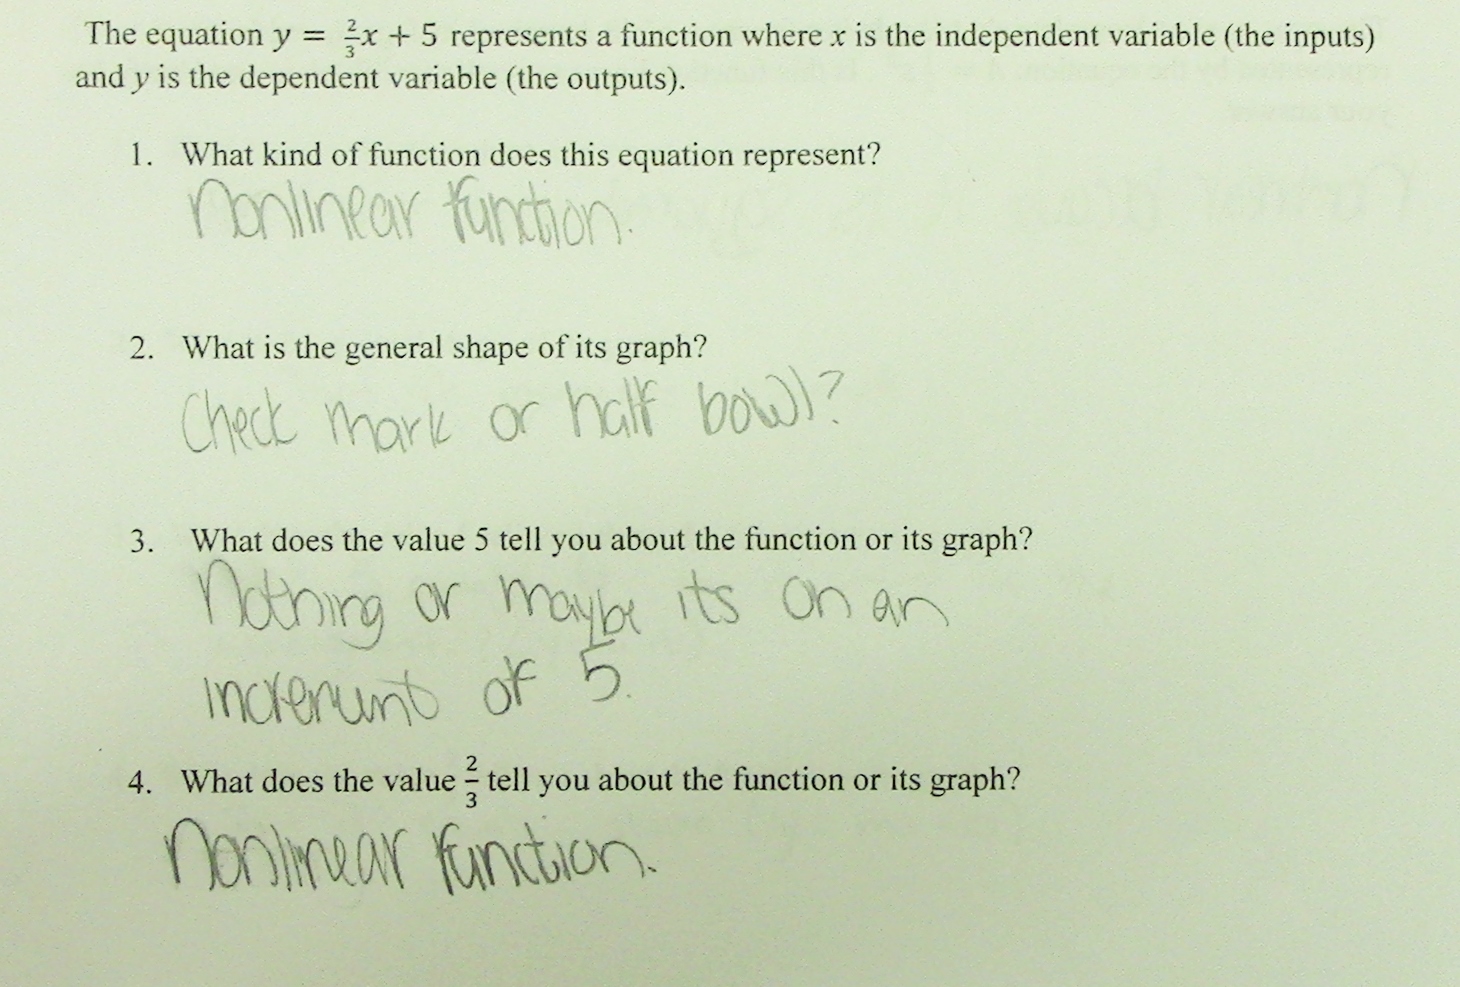 The equation y = 2/3 x + 5 represents a function where x is the independent variable (the inputs)
and y is the dependent variable (the outputs).
1. What kind of function does this equation represent?
Nonlinear function.
2. What is the general shape of its graph?
Check mark or half bowl?
3. What does the value 5 tell you about the function or its graph?
Nothing or maybe its on an
increment of 5.
4. What does the value 2/3 tell you about the function or its graph?
Nonlinear function.